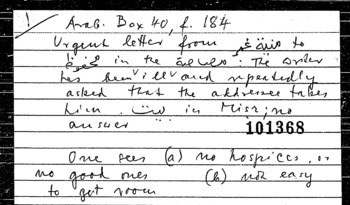 ! Arab. Box 40, f. 184
Urgent letter from منية غمر to
in the : The writer
has been ill and repeatedly
asked that the addressee takes
him. in Misr; no
answer
101368
One sees (a) no hospices, or
no good ones (b) not easy
to get room